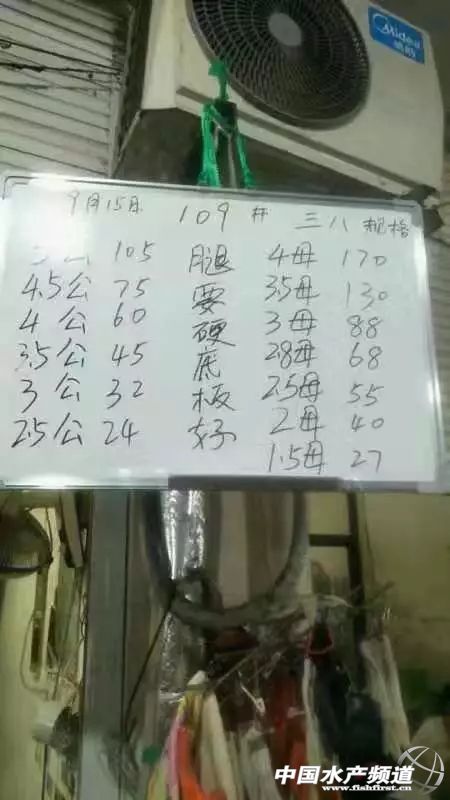 Midea
美的
9月15日 109 井 三八规格
公 105
4.5公 75
4公 60
3.5公 45
3公 32
2.5公 24
腿要硬底板好
4母 170
3.5母 130
3母 88
2.8母 68
2.5母 55
2母 40
1.5母 27
中国水产频道
www.fishfirst.cn